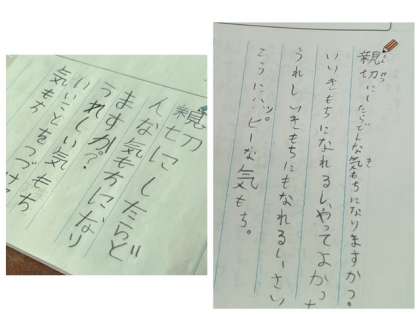 親切にしたらど
んな気もちになり
ますか?
うれしい気もち
いいことをつづけ
気もち
親切にしたらどんな気もちになりますか?
いいきもちになれるし、やってよかった
うれしいきもちにもなれるし、さい
こうにハッピーな気もち。